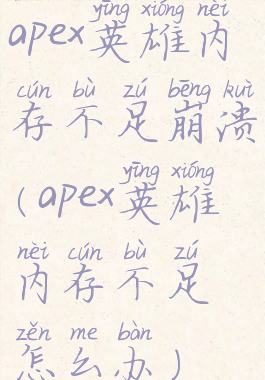 yīng xióng nèi
apex英雄内
cún bù zú bēng kuì
存不足崩溃
yīng xióng
(apex英雄
nèi cún bù zú
内存不足
zěn me bàn
怎么办)